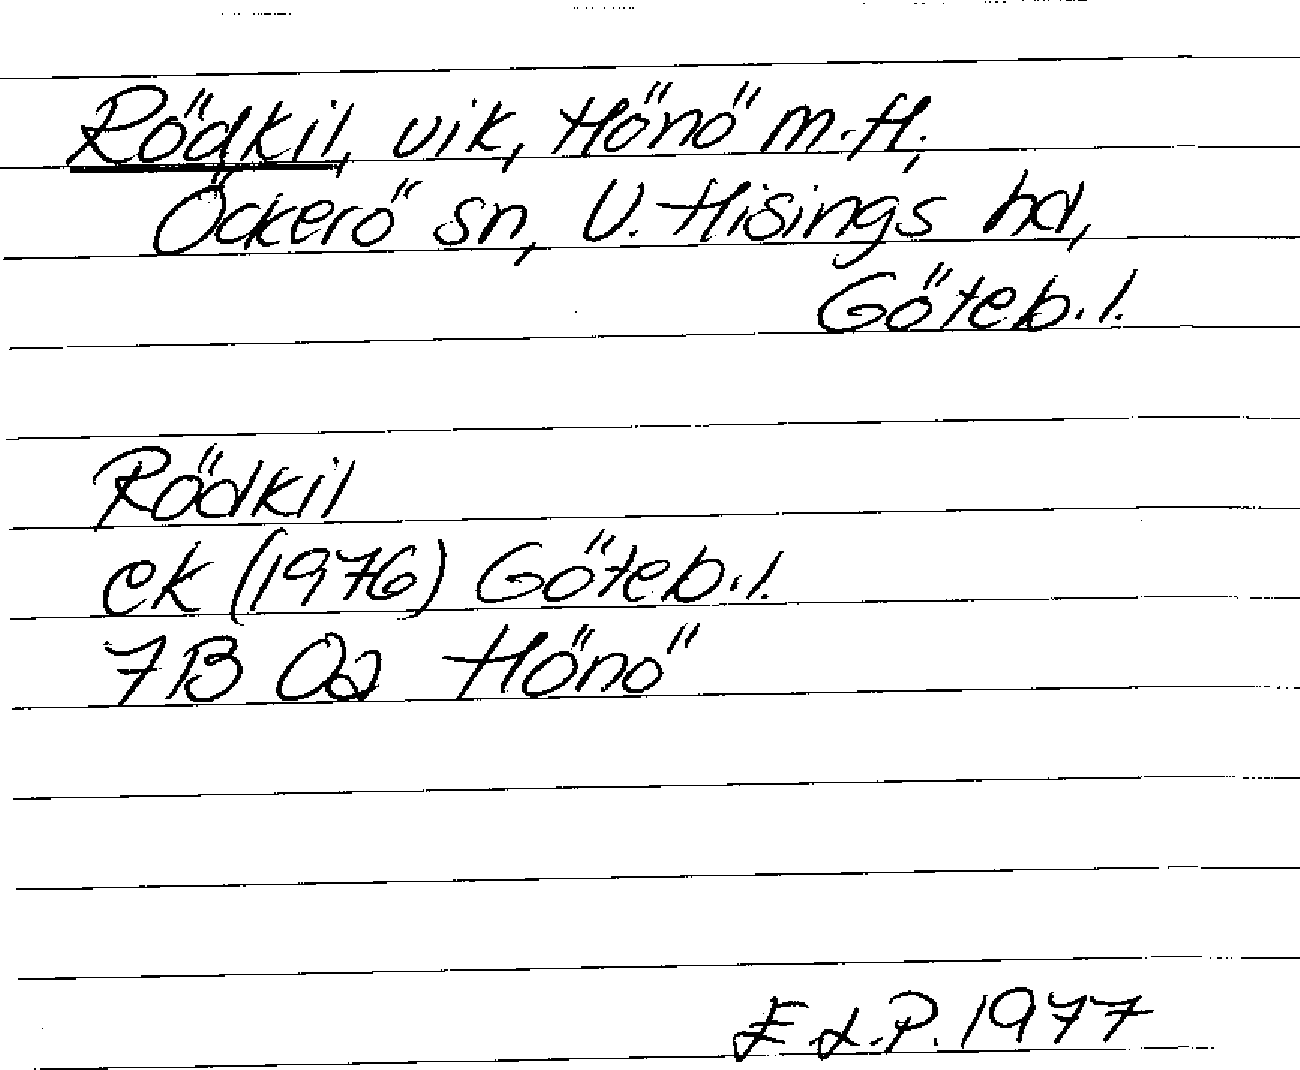 Rödkil, vik, Hönö m.fl.,
Öckerö sn, V. Hisings hd,
Göteb.l.
Rödkil
ek (1976) Göteb.l.
7B 0a Hönö
E L.P. 1977